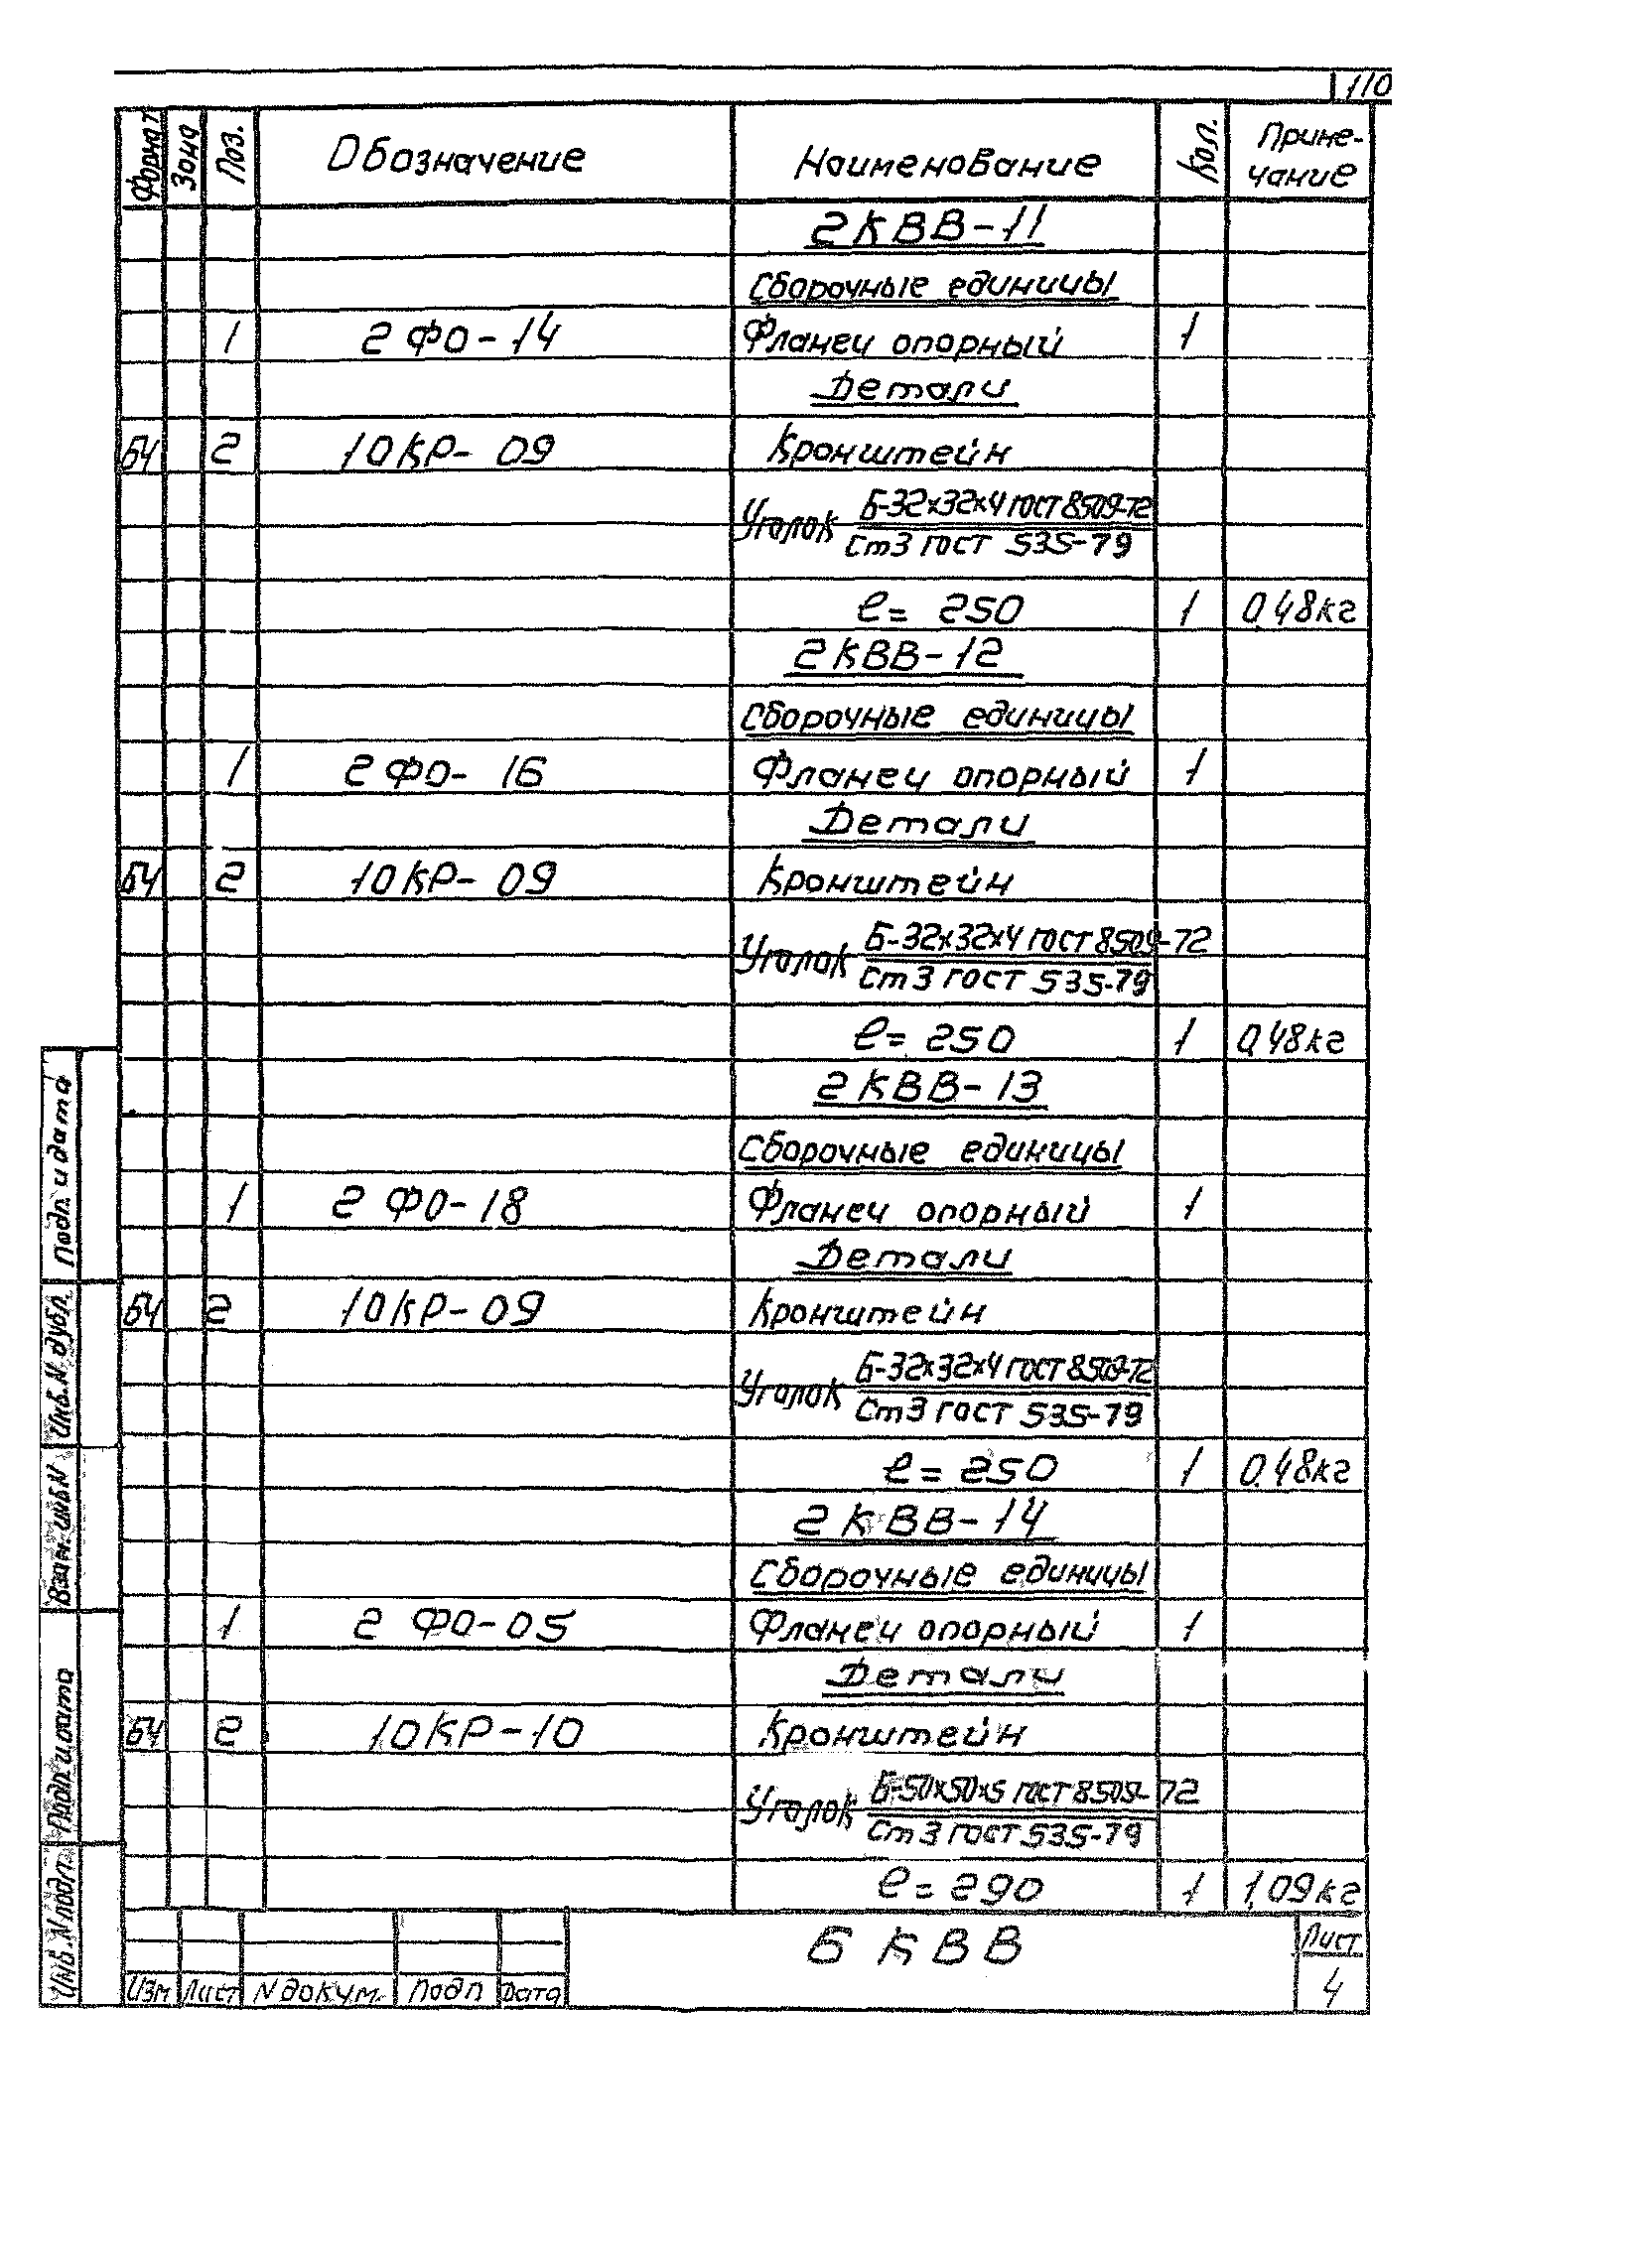 110
Формат Зона Поз. Обозначение Наименование Кол. Приме-
чание
2КВВ-11
Сборочные единицы
1 2ФО-14 Фланец опорный 1
Детали
БЧ 2 10КР-09 Кронштейн
Уголок Б-32х32х4 ГОСТ 8509-72
Ст3 ГОСТ 535-79
ℓ= 250 1 0,48кг
2КВВ-12
Сборочные единицы
1 2ФО-16 Фланец опорный 1
Детали
БЧ 2 10КР-09 Кронштейн
Уголок Б-32х32х4 ГОСТ 8509-72
Ст3 ГОСТ 535-79
ℓ= 250 1 0,48кг
2КВВ-13
Сборочные единицы
1 2ФО-18 Фланец опорный 1
Детали
БЧ 2 10КР-09 Кронштейн
Уголок Б-32х32х4 ГОСТ 8509-72
Ст3 ГОСТ 535-79
ℓ= 250 1 0,48кг
2КВВ-14
Сборочные единицы
1 2ФО-05 Фланец опорный 1
Детали
БЧ 2 10КР-10 Кронштейн
Уголок Б-50х50х5 ГОСТ 8509-72
Ст3 ГОСТ 535-79
ℓ= 290 1 1,09кг
Подп. и дата
Инв.N дубл.
Взам. инв.N
Подп. и дата
Инв.N подл.
Изм Лист N докум. Подп Дата
Б КВВ
Лист
4